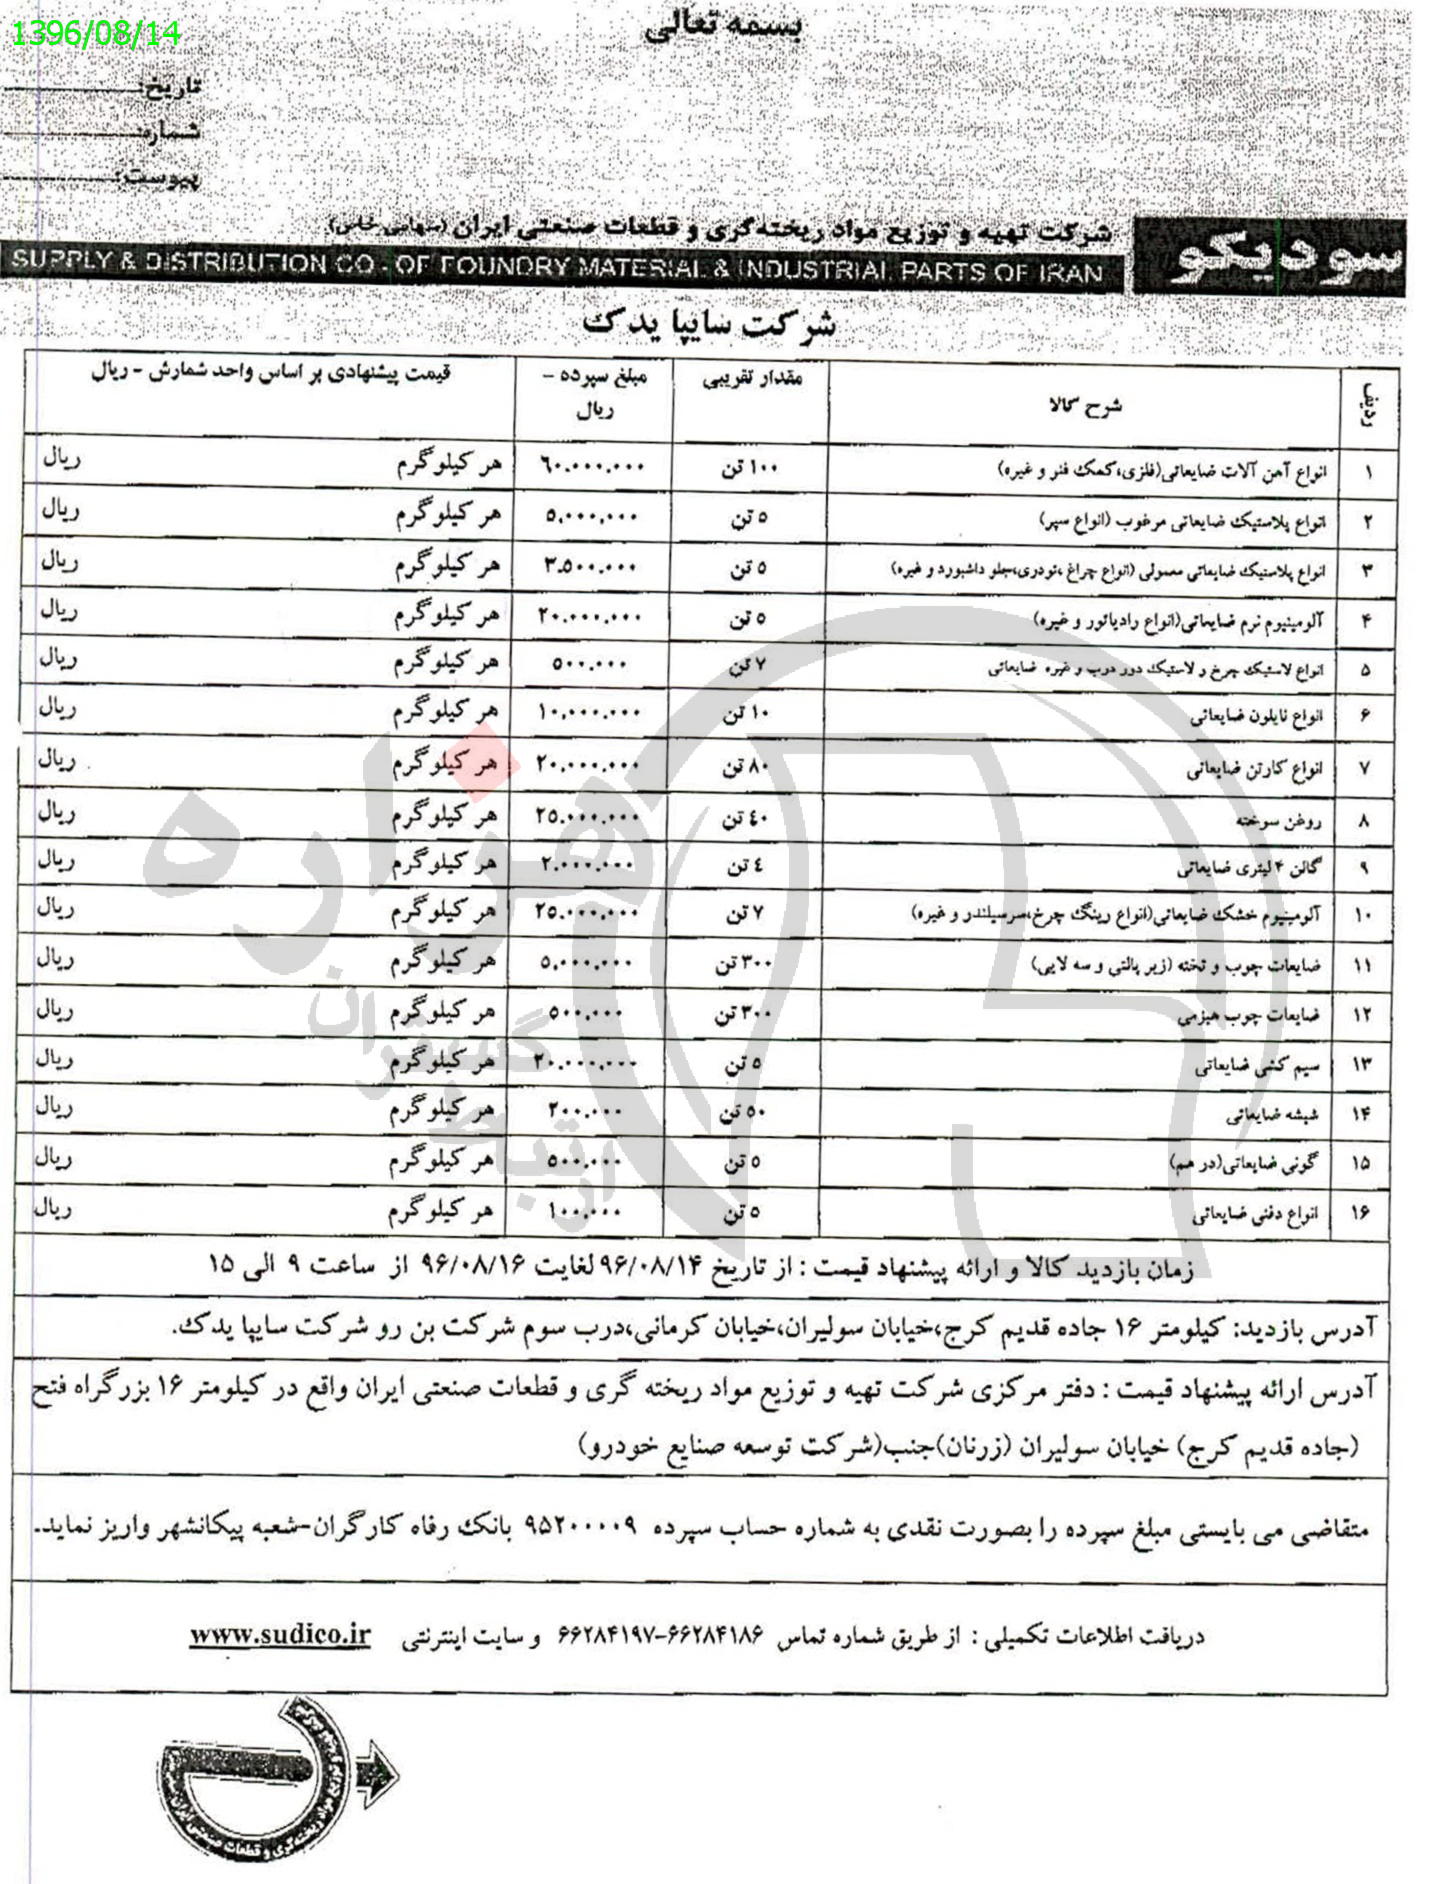 1396/08/14
بسمه تعالی
تاریخ:
شماره:
پیوست:
سودیکو
شرکت تهیه و توزیع مواد ریخته گری و قطعات صنعتی ایران (سهامی خاص)
SUPPLY & DISTRIBUTION CO . OF FOUNDRY MATERIAL & INDUSTRIAL PARTS OF IRAN
شرکت سایپا یدک
ردیف شرح کالا مقدار تقریبی مبلغ سپرده – ریال قیمت پیشنهادی بر اساس واحد شمارش - ریال
۱ انواع آهن آلات ضایعاتی(فلزی،کمک فنر و غیره) ۱۰۰ تن ۶۰.۰۰۰.۰۰۰ هر کیلوگرم ریال
۲ انواع پلاستیک ضایعاتی مرغوب (انواع سپر) ۵ تن ۵,۰۰۰,۰۰۰ هر کیلوگرم ریال
۳ انواع پلاستیک ضایعاتی معمولی (انواع چراغ ،تودری،جلو داشبورد و غیره) ۵ تن ۳.۵۰۰.۰۰۰ هر کیلوگرم ریال
۴ آلومینیوم نرم ضایعاتی(انواع رادیاتور و غیره) ۵ تن ۲۰.۰۰۰.۰۰۰ هر کیلوگرم ریال
۵ انواع لاستیک چرخ و لاستیک دور درب و غیره ضایعاتی ۷ تن ۵۰۰.۰۰۰ هر کیلوگرم ریال
۶ انواع نایلون ضایعاتی ۱۰ تن ۱۰,۰۰۰,۰۰۰ هر کیلوگرم ریال
۷ انواع کارتن ضایعاتی ۸۰ تن ۲۰,۰۰۰,۰۰۰ هر کیلوگرم ریال
۸ روغن سوخته ۴۰ تن ۲۵.۰۰۰.۰۰۰ هر کیلوگرم ریال
۹ گالن ۴ لیتری ضایعاتی ۴ تن ۲.۰۰۰.۰۰۰ هر کیلوگرم ریال
۱۰ آلومینیوم خشک ضایعاتی(انواع رینگ چرخ،سرسیلندر و غیره) ۷ تن ۲۵.۰۰۰,۰۰۰ هر کیلوگرم ریال
۱۱ ضایعات چوب و تخته (زیر پالتی و سه لایی) ۳۰۰ تن ۵,۰۰۰,۰۰۰ هر کیلوگرم ریال
۱۲ ضایعات چوب هیزمی ۳۰۰ تن ۵۰۰,۰۰۰ هر کیلوگرم ریال
۱۳ سیم کشی ضایعاتی ۵ تن ۲۰,۰۰۰,۰۰۰ هر کیلوگرم ریال
۱۴ شیشه ضایعاتی ۵۰ تن ۲۰۰.۰۰۰ هر کیلوگرم ریال
۱۵ گونی ضایعاتی(در هم) ۵ تن ۵۰۰,۰۰۰ هر کیلوگرم ریال
۱۶ انواع دفنی ضایعاتی ۵ تن ۱۰۰,۰۰۰ هر کیلوگرم ریال
زمان بازدید کالا و ارائه پیشنهاد قیمت : از تاریخ ۹۶/۰۸/۱۴ لغایت ۹۶/۰۸/۱۶ از ساعت ۹ الی ۱۵
آدرس بازدید: کیلومتر ۱۶ جاده قدیم کرج،خیابان سولیران،خیابان کرمانی،درب سوم شرکت بن رو شرکت سایپا یدک.
آدرس ارائه پیشنهاد قیمت : دفتر مرکزی شرکت تهیه و توزیع مواد ریخته گری و قطعات صنعتی ایران واقع در کیلومتر ۱۶ بزرگراه فتح
(جاده قدیم کرج) خیابان سولیران (زرنان)جنب(شرکت توسعه صنایع خودرو)
متقاضی می بایستی مبلغ سپرده را بصورت نقدی به شماره حساب سپرده ۹۵۲۰۰۰۰۹ بانک رفاه کارگران-شعبه پیکانشهر واریز نماید.
دریافت اطلاعات تکمیلی : از طریق شماره تماس ۶۶۲۸۴۱۸۶-۶۶۲۸۴۱۹۷ و سایت اینترنتی www.sudico.ir